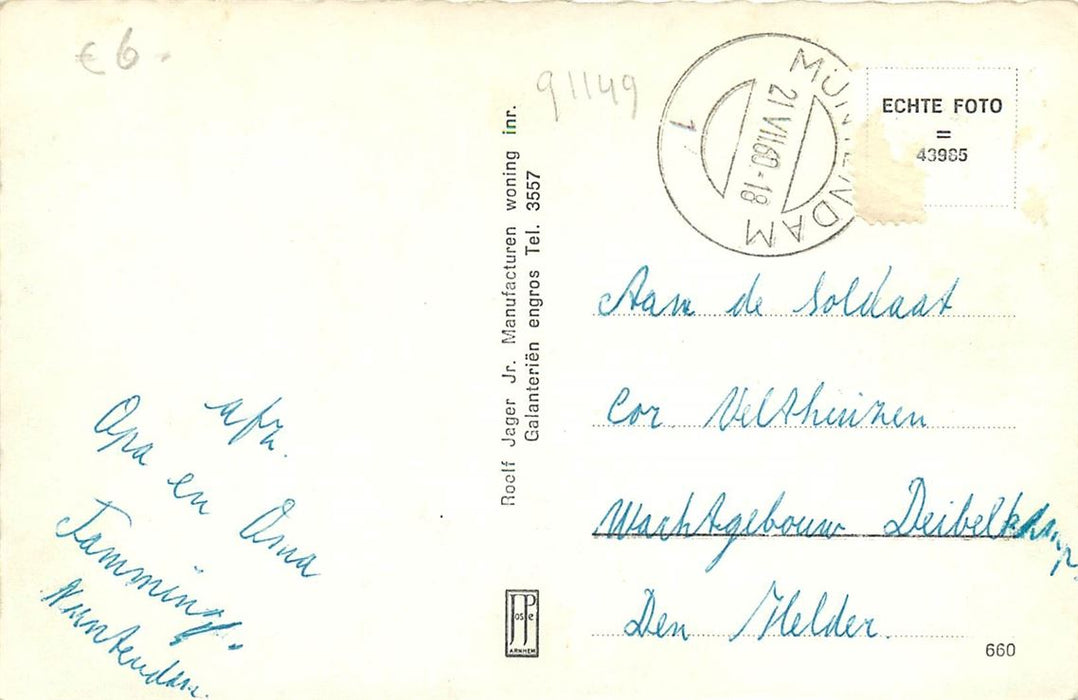 € 6.
91149
MUNTENDAM
21 VII.60-18
1
ECHTE FOTO
=
43985
afz.
Opa en Oma
Tamminga
Muntendam.
Roelf Jager Jr. Manufacturen woning inr.
Galanteriën engros Tel. 3557
JosPe
ARNHEM
Aan de soldaat
Cor Velthuizen
Wachtgebouw Deibelkamp
Den Helder.
660